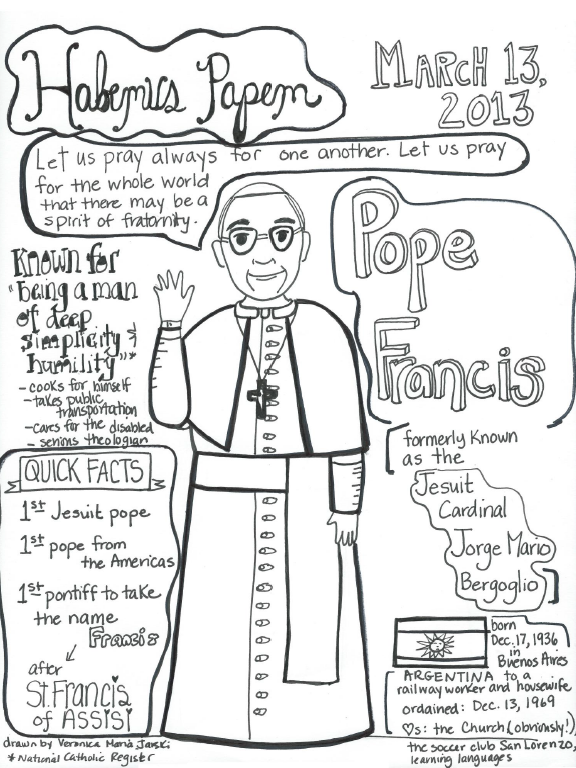 Habemus Papem
MARCH 13,
2013
Let us pray always for one another. Let us pray
for the whole world
that there may be a
spirit of fraternity.
Pope
Francis
Known for
"being a man
of deep
simplicity &
humility"*
- cooks for himself
- takes public
transportation
- cares for the disabled
- serious theologian
QUICK FACTS
1st Jesuit pope
1st pope from
the Americas
1st pontiff to take
the name
Francis
after
St. Francis
of Assisi
[formerly known
as the
Jesuit
Cardinal
Jorge Mario
Bergoglio]
born
Dec. 17, 1936
in
Buenos Aires
ARGENTINA to a
railway worker and housewife
ordained: Dec. 13, 1969
♡s: the Church (obviously!),
the soccer club San Lorenzo,
learning languages
drawn by Veronica María Jarski
* National Catholic Register